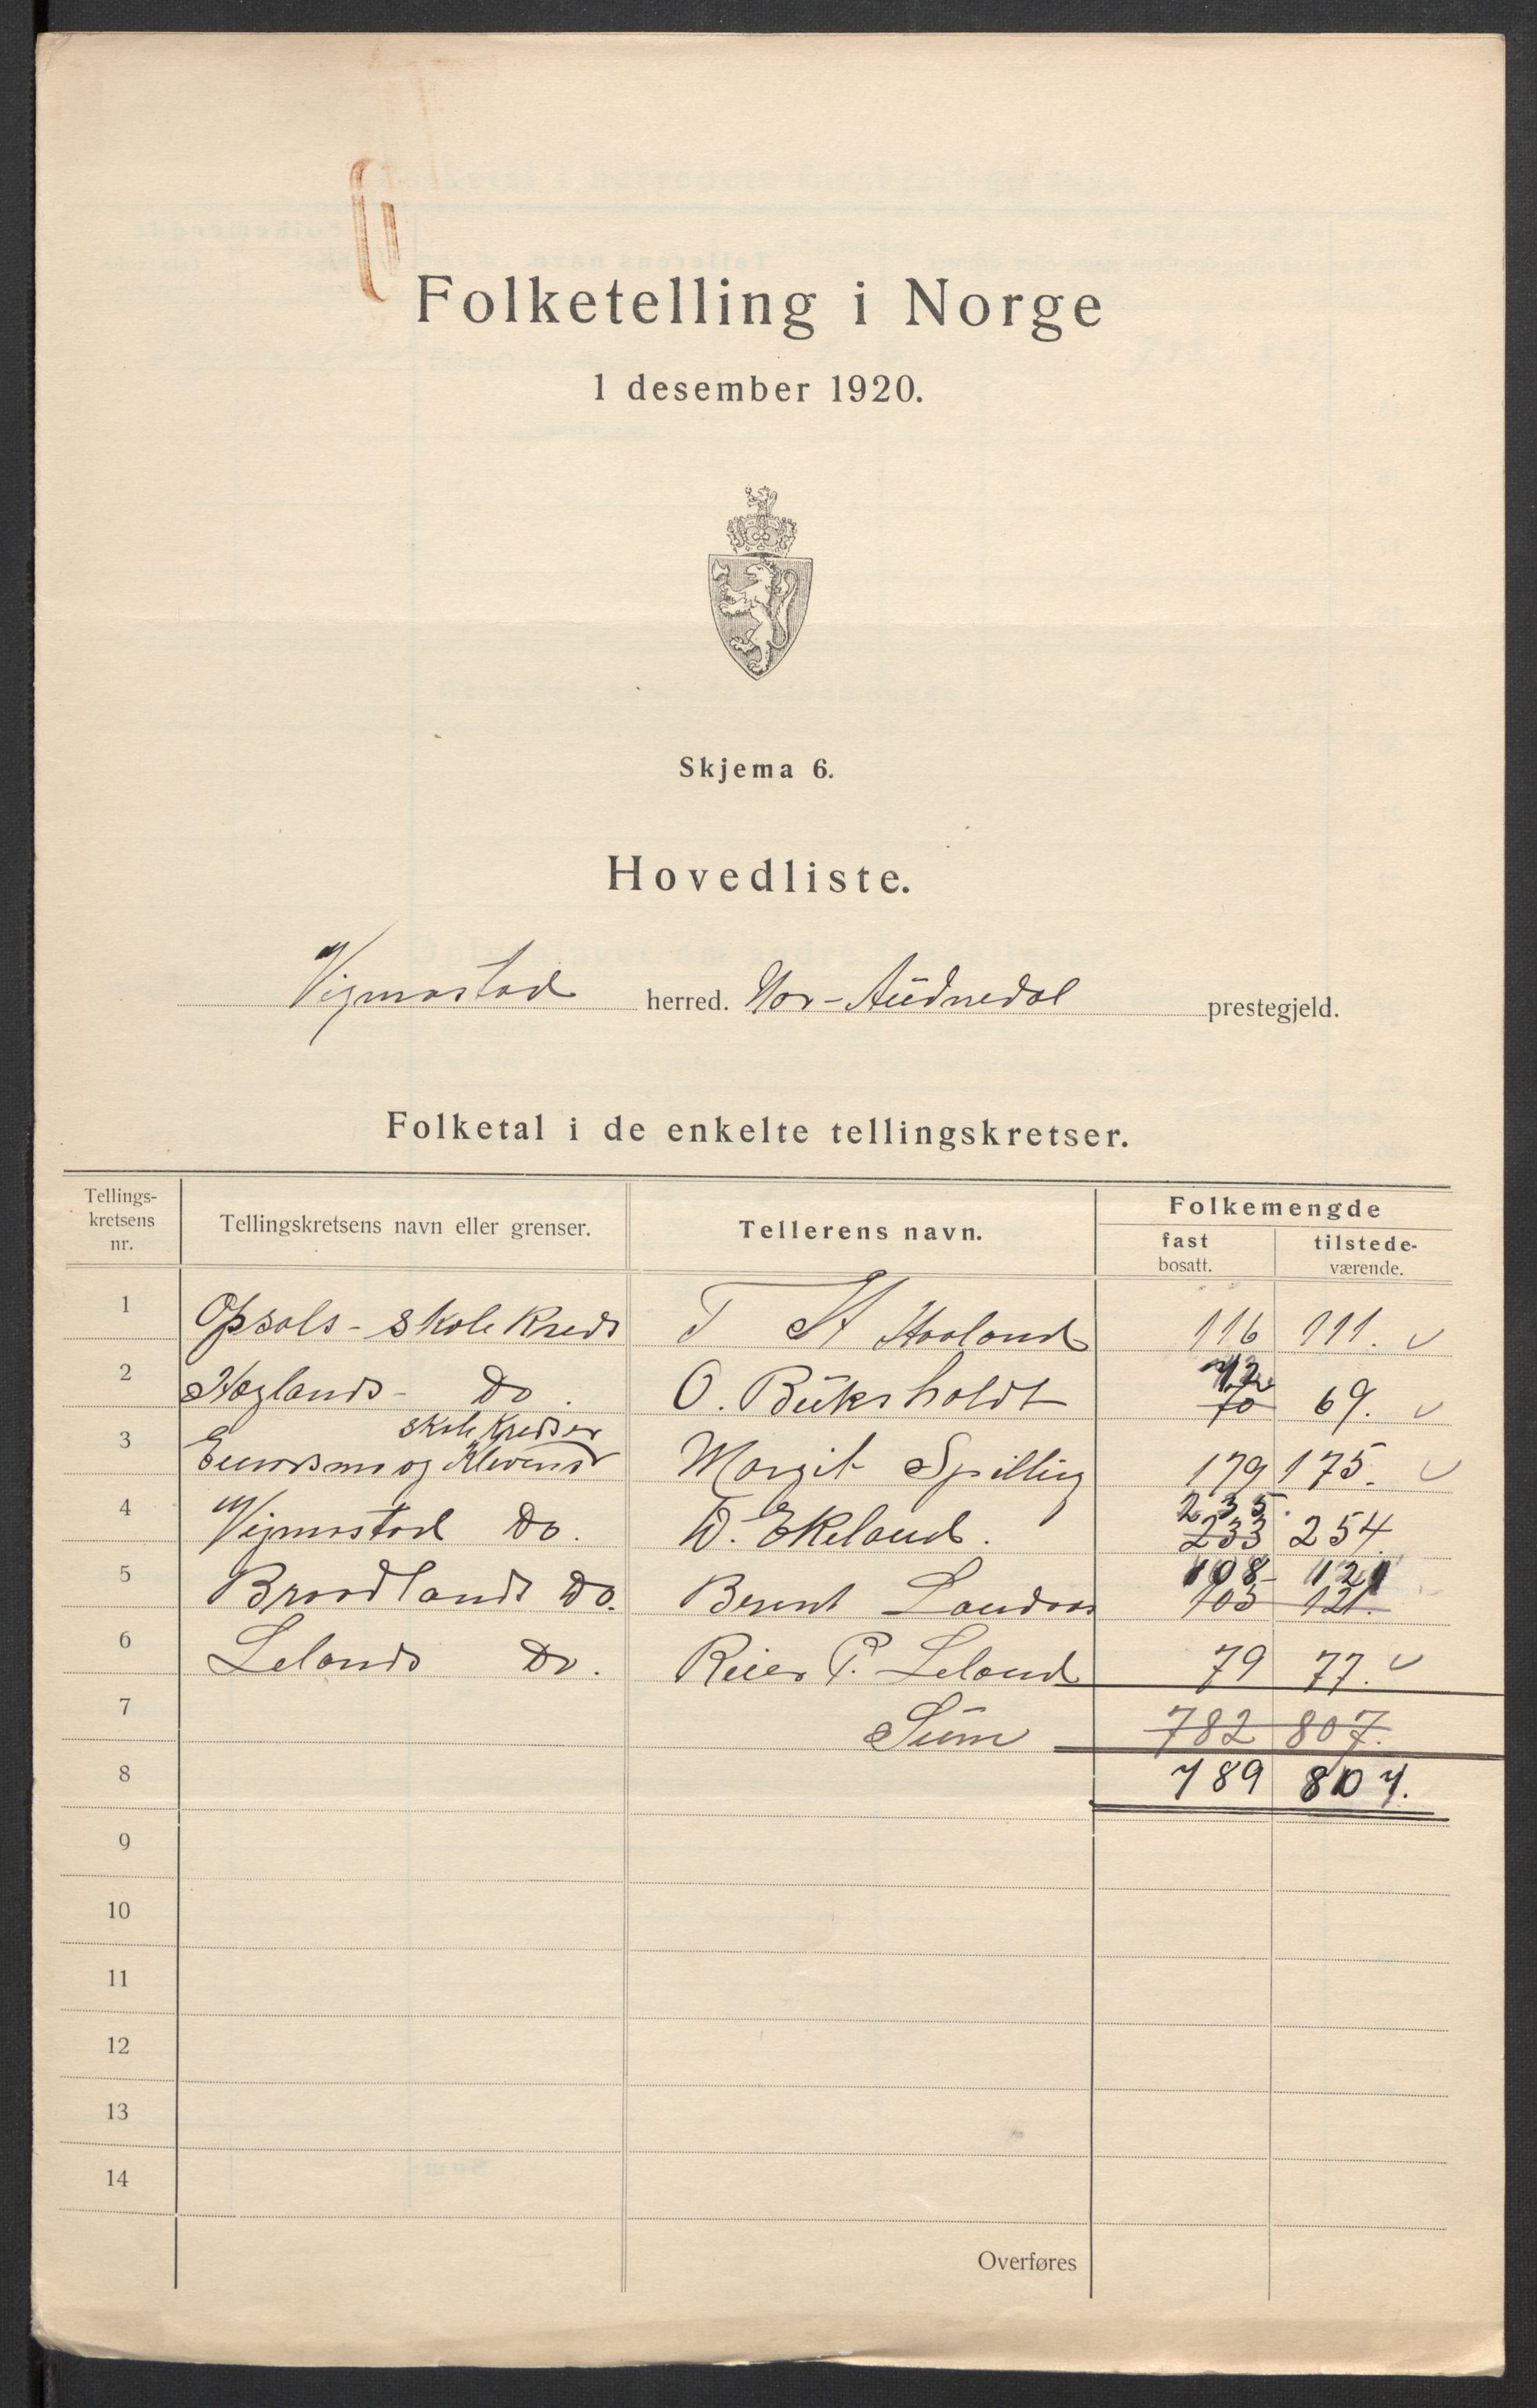 Folketelling i Norge
1 desember 1920.
Skjema 6.
Hovedliste.
Vigmostad herred. Nor-Audnedal prestegjeld.
Folketal i de enkelte tellingskretser.
Tellings-kretsens nr. Tellingskretsens navn eller grenser. Tellerens navn. Folkemengde fast bosatt. tilstede-værende.
1 Opsals - Skole Kreds T St Haaland 116 111.
72
2 Hoglands - Do. O. Büksholdt 70 69.
Skole Kredser
3 og Margit Spilling 179 175.
235.
4 Vigmostad Do. W. Ekeland. 233 254
108 121
5 Broodlands Do. Berent Landaas 105 121.
6 Lelands Do. Reier P. Leland 79 77.
7 Süm 782 807.
8 789 807.
9
10
11
12
13
14
Overføres